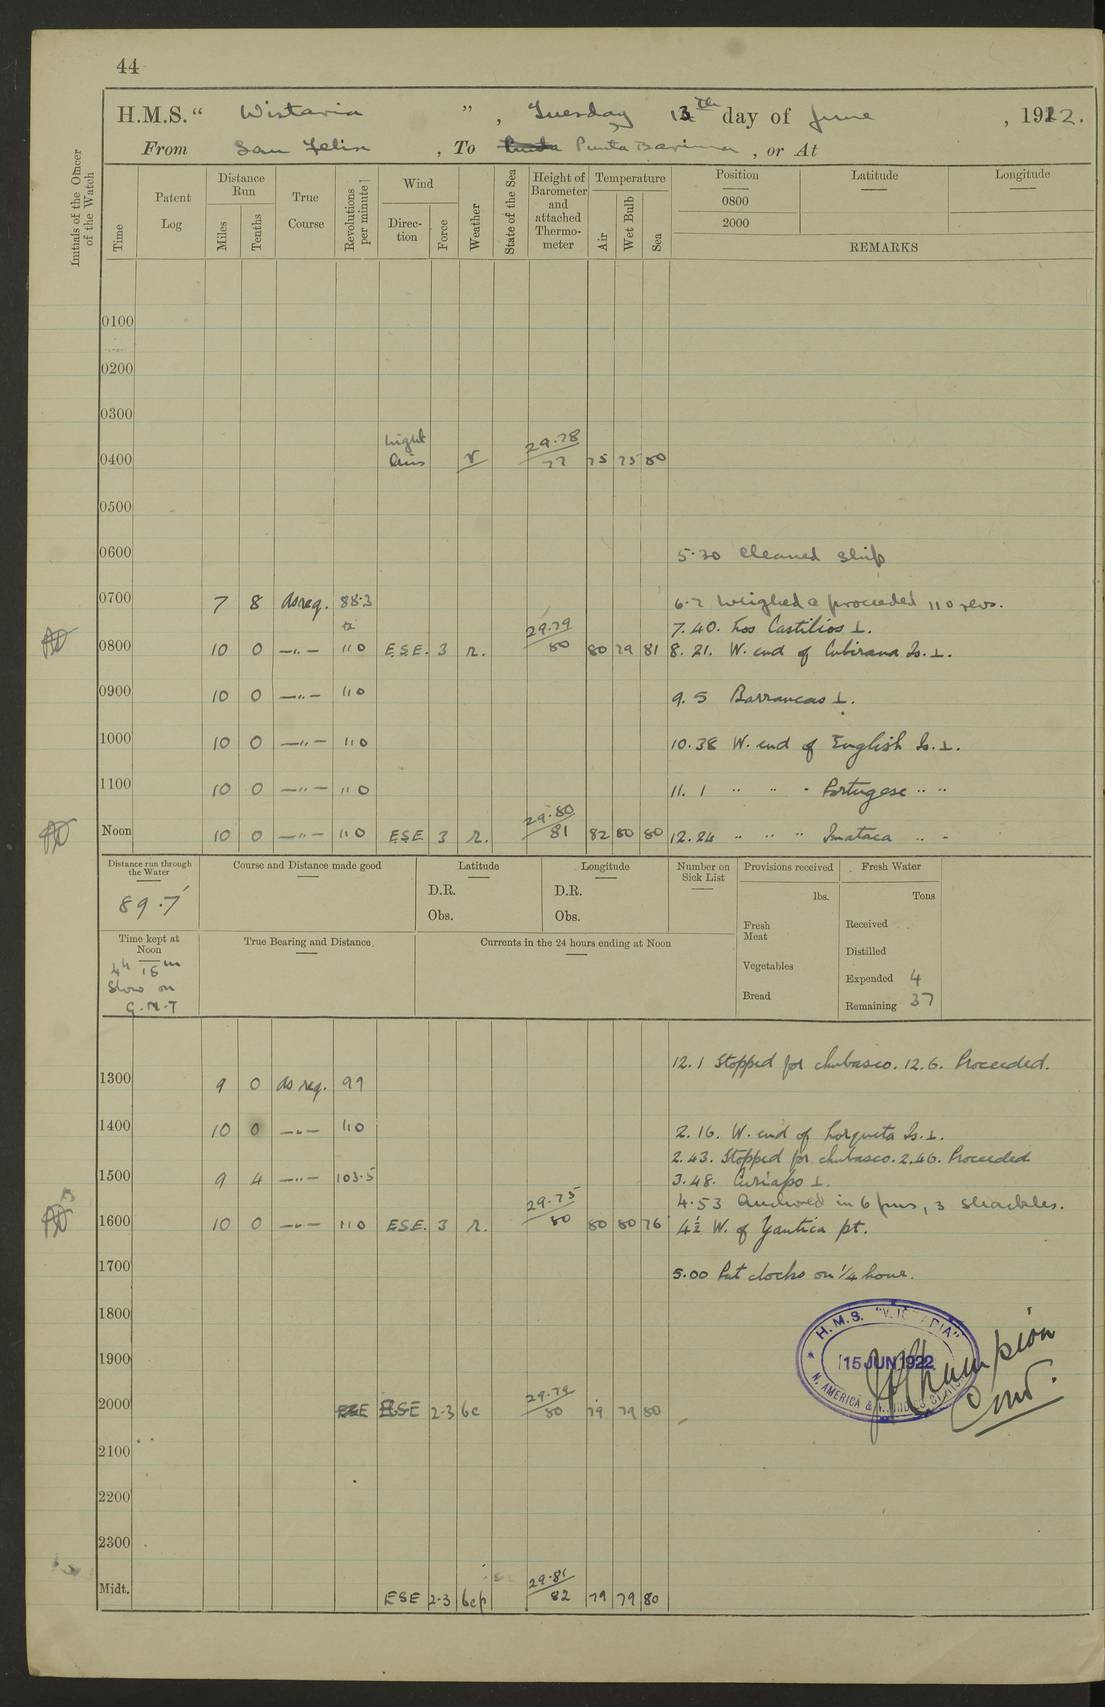 44
H.M.S. “ Wistaria ” , Tuesday 13th day of June , 1922.
From San Felix , To Punta Barima , or At
Initials of the Officer of the Watch
Time
Patent Log
Distance Run
Miles
Tenths
True Course
Revolutions per minute
Wind
Direction
Force
Weather
State of the Sea
Height of Barometer and attached Thermometer
Temperature
Air
Wet Bulb
Sea
Position
0800
2000
Latitude
Longitude
REMARKS
0100
0200
0300
0400 Light Airs r 29.78 77 75 75 80
0500
0600 5.30 Cleaned Ship
0700 7 8 As req. 88.3 6.7 Weighed & proceeded 110 revs.
7.40. Los Castilios ⊥.
0800 10 0 —"— 110 E.S.E. 3 r. 29.79 80 80 79 81 8. 21. W. end of Cubirana Is. ⊥.
0900 10 0 —"— 110 9. 5 Barrancas ⊥.
1000 10 0 —"— 110 10.38 W. end of English Is. ⊥.
1100 10 0 —"— 110 11. 1 " " " Portugese " "
Noon 10 0 —"— 110 ESE 3 r. 29.80 81 82 80 80 12.24 " " " Imataca " "
Distance run through the Water
89.7
Course and Distance made good
Latitude
D.R.
Obs.
Longitude
D.R.
Obs.
Number on Sick List
Provisions received
lbs.
Fresh Meat
Vegetables
Bread
Fresh Water
Tons
Received
Distilled
Expended 4
Remaining 37
Time kept at Noon
4h 15m
Slow on
G.M.T
True Bearing and Distance.
Currents in the 24 hours ending at Noon
12.1 Stopped for chubasco. 12.6. Proceeded.
1300 9 0 As req. 99
1400 10 0 —"— 110 2.16. W. end of Lorqueta Is. ⊥.
2.43. Stopped for chubasco. 2.46. Proceeded
1500 9 4 —"— 103.5 3.48. Curiapo ⊥.
4.53 Anchored in 6 fms, 3 shackles.
1600 10 0 —"— 110 ESE. 3 r. 29.75 80 80 80 76 4½ W. of Yantica pt.
1700 5.00 Put clocks on ¼ hour.
1800
1900
H.M.S. "WISTARIA"
15 JUN 1922
N. AMERICA & W. INDIES
Champion
Comdr.
2000 ESE 2-3 bc 29.79 80 79 79 80
2100
2200
2300
Midt. ESE 2-3 bcp 29.81 82 79 79 80